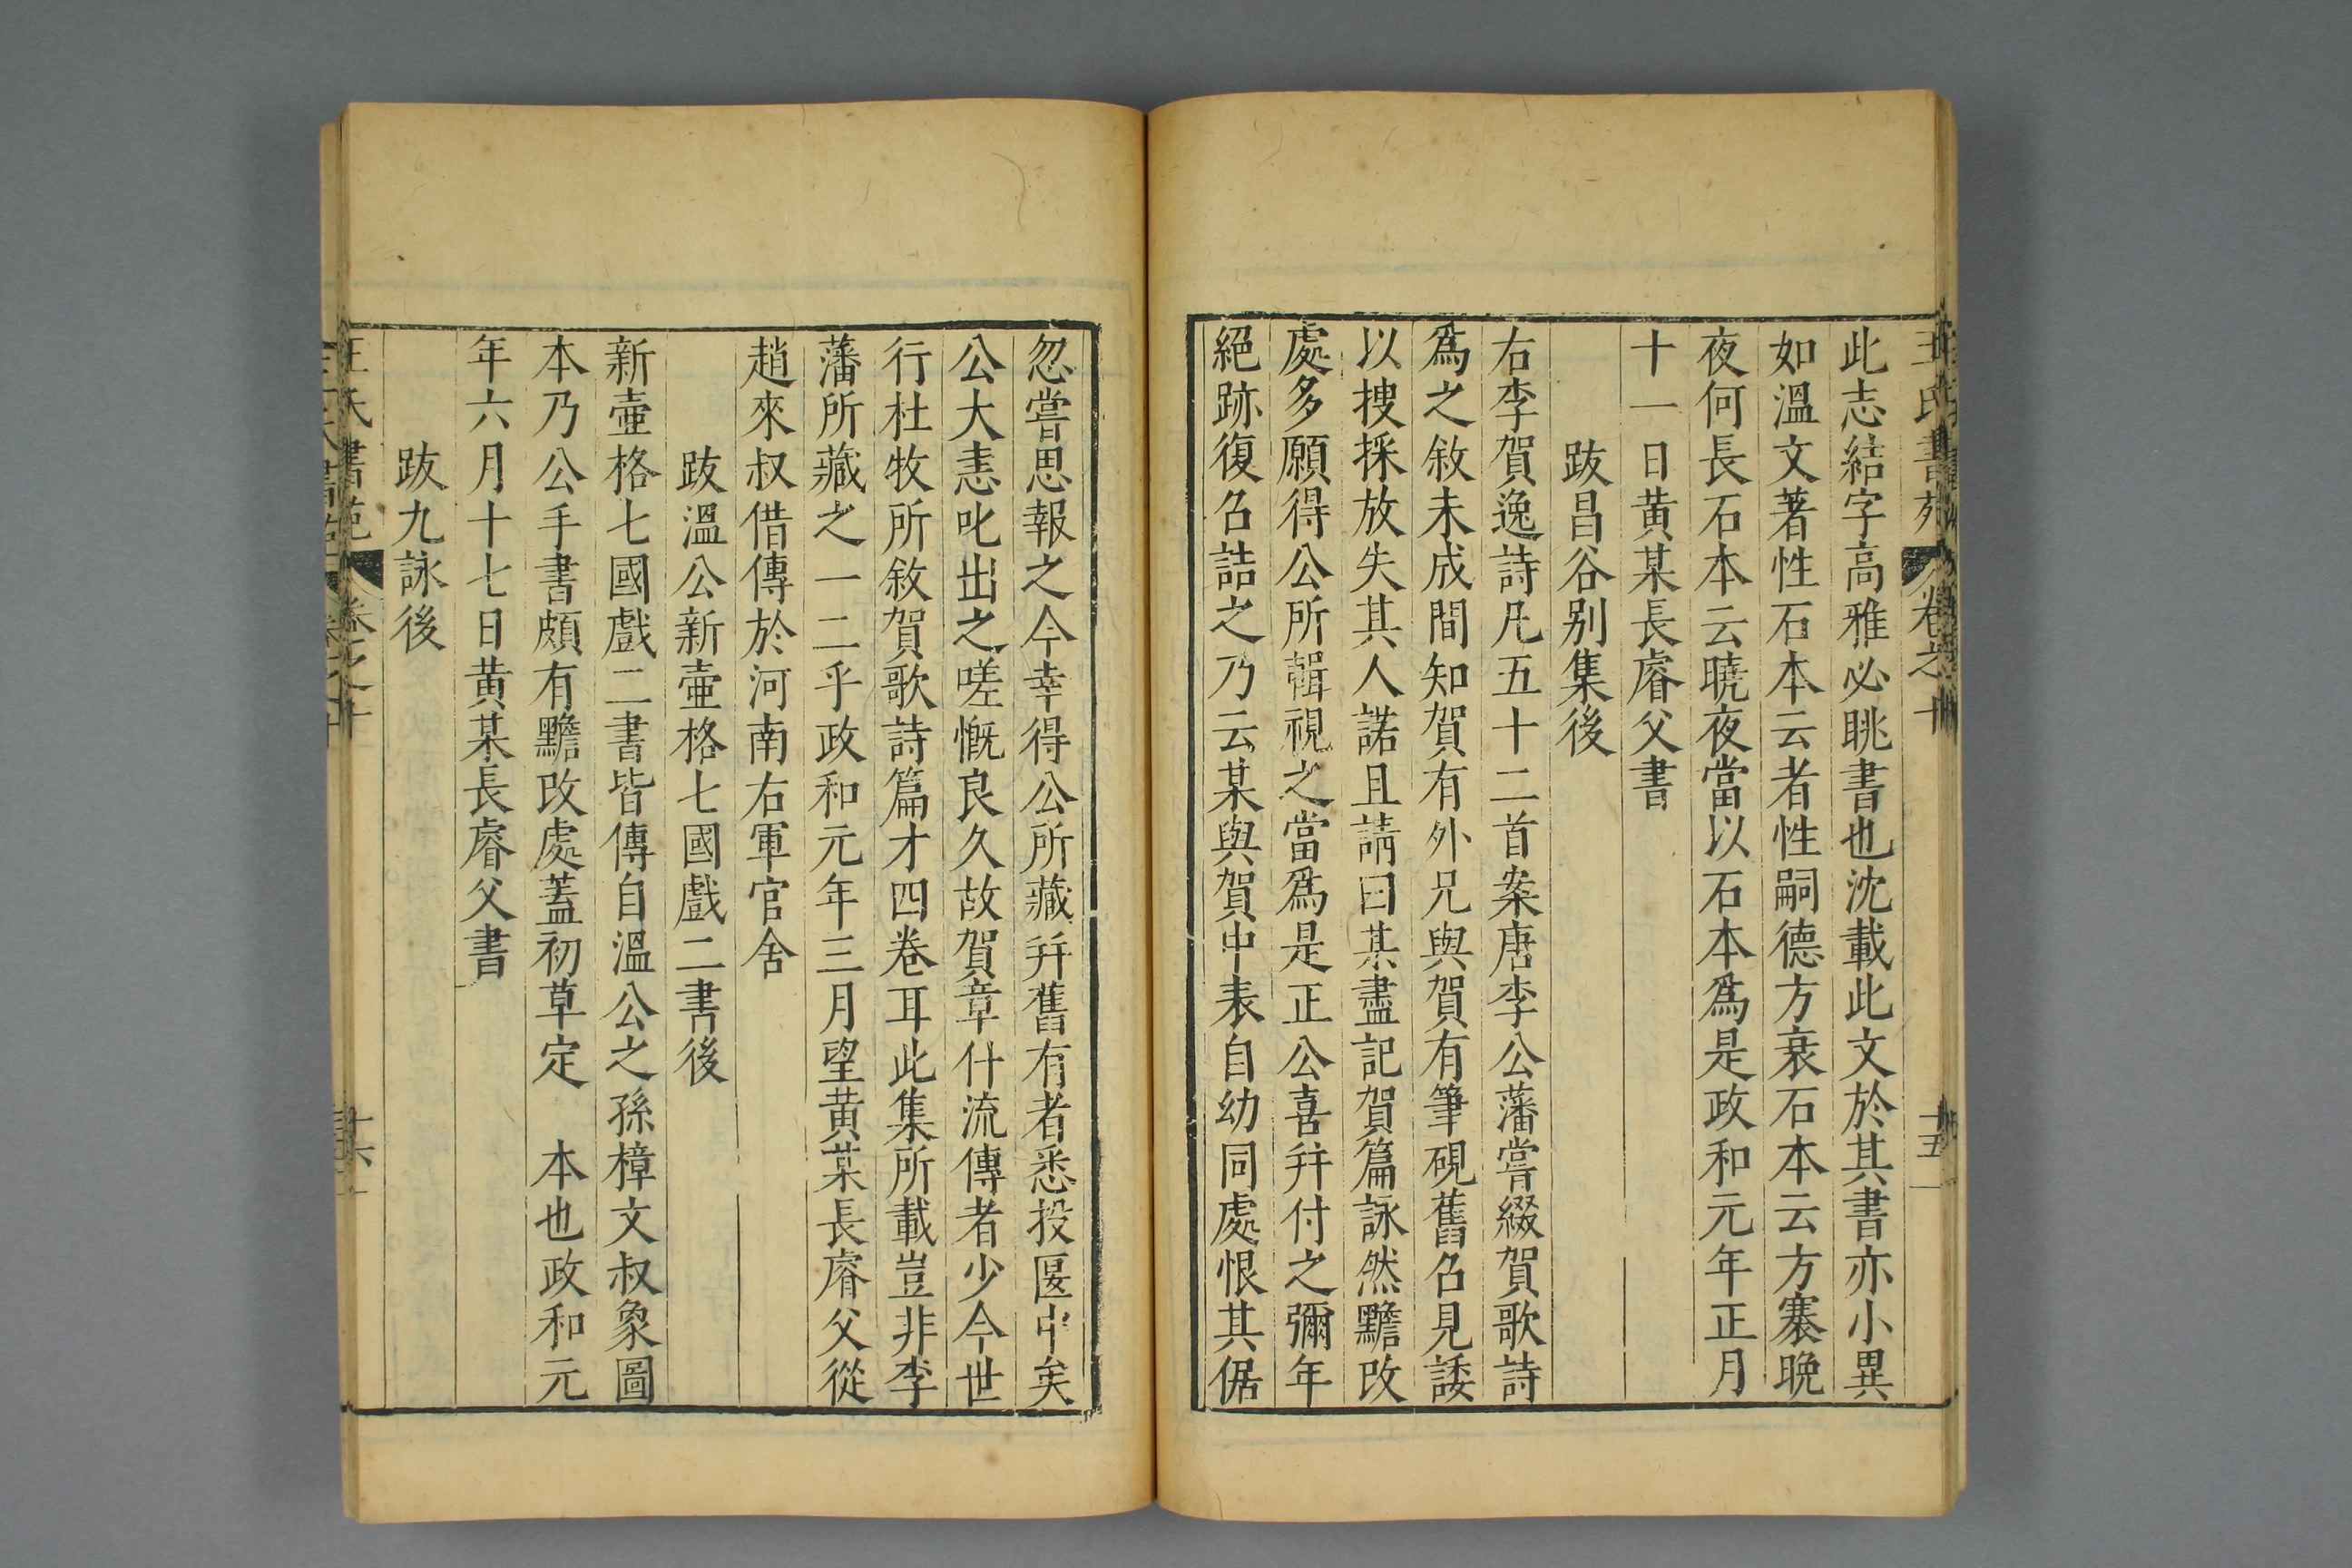 王氏書苑 卷之十 十五
此志結字高雅必眺書也沈載此文於其書亦小異
如溫文著性石本云者性嗣德方衰石本云方寨晚
夜何長石本云曉夜當以石本爲是政和元年正月
十一日黃某長睿父書
跋昌谷别集後
右李賀逸詩凡五十二首案唐李公藩嘗綴賀歌詩
爲之敘未成間知賀有外兄與賀有筆硯舊召見諉
以捜採放失其人諾且請曰某盡記賀篇詠然黵改
處多願得公所輯視之當爲是正公喜并付之彌年
絕跡復召詰之乃云某與賀中表自幼同處恨其倨
忽嘗思報之今幸得公所藏并舊有者悉投匽中矣
公大恚叱出之嗟慨良久故賀章什流傳者少今世
行杜牧所敘賀歌詩篇才四卷耳此集所載豈非李
藩所藏之一二乎政和元年三月望黃某長睿父從
趙來叔借傳於河南右軍官舍
跋溫公新壷格七國戲二書後
新壷格七國戲二書皆傳自溫公之孫樟文叔象圖
本乃公手書頗有黵改處蓋初草定 本也政和元
年六月十七日黃某長睿父書
跋九詠後
王氏書苑 卷之十 十六